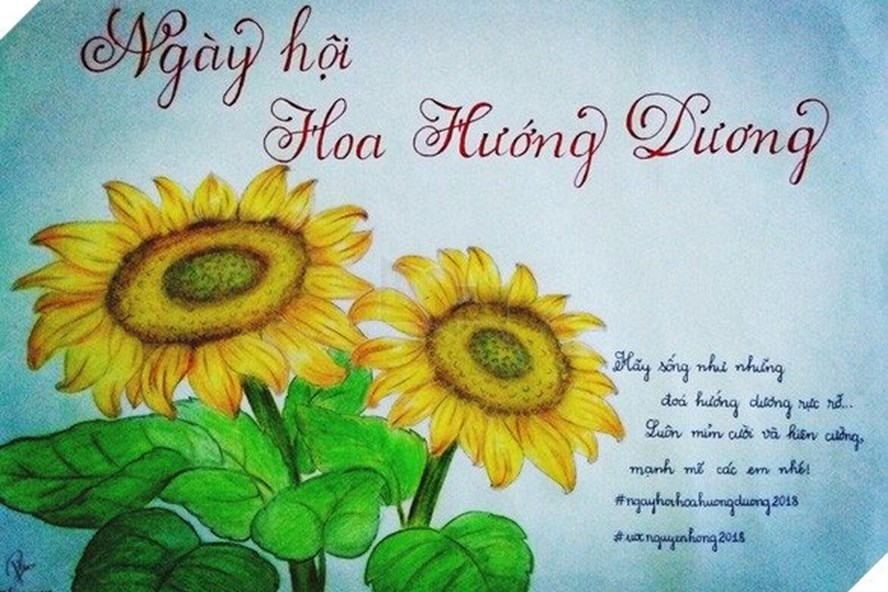 Ngày hội
Hoa Hướng Dương
Hãy sống như những
đoá hướng dương rực rỡ...
Luôn mỉm cười và kiên cường,
mạnh mẽ các em nhé!
#ngayhoihoahuongduong2018
#uxnguyenhong2018